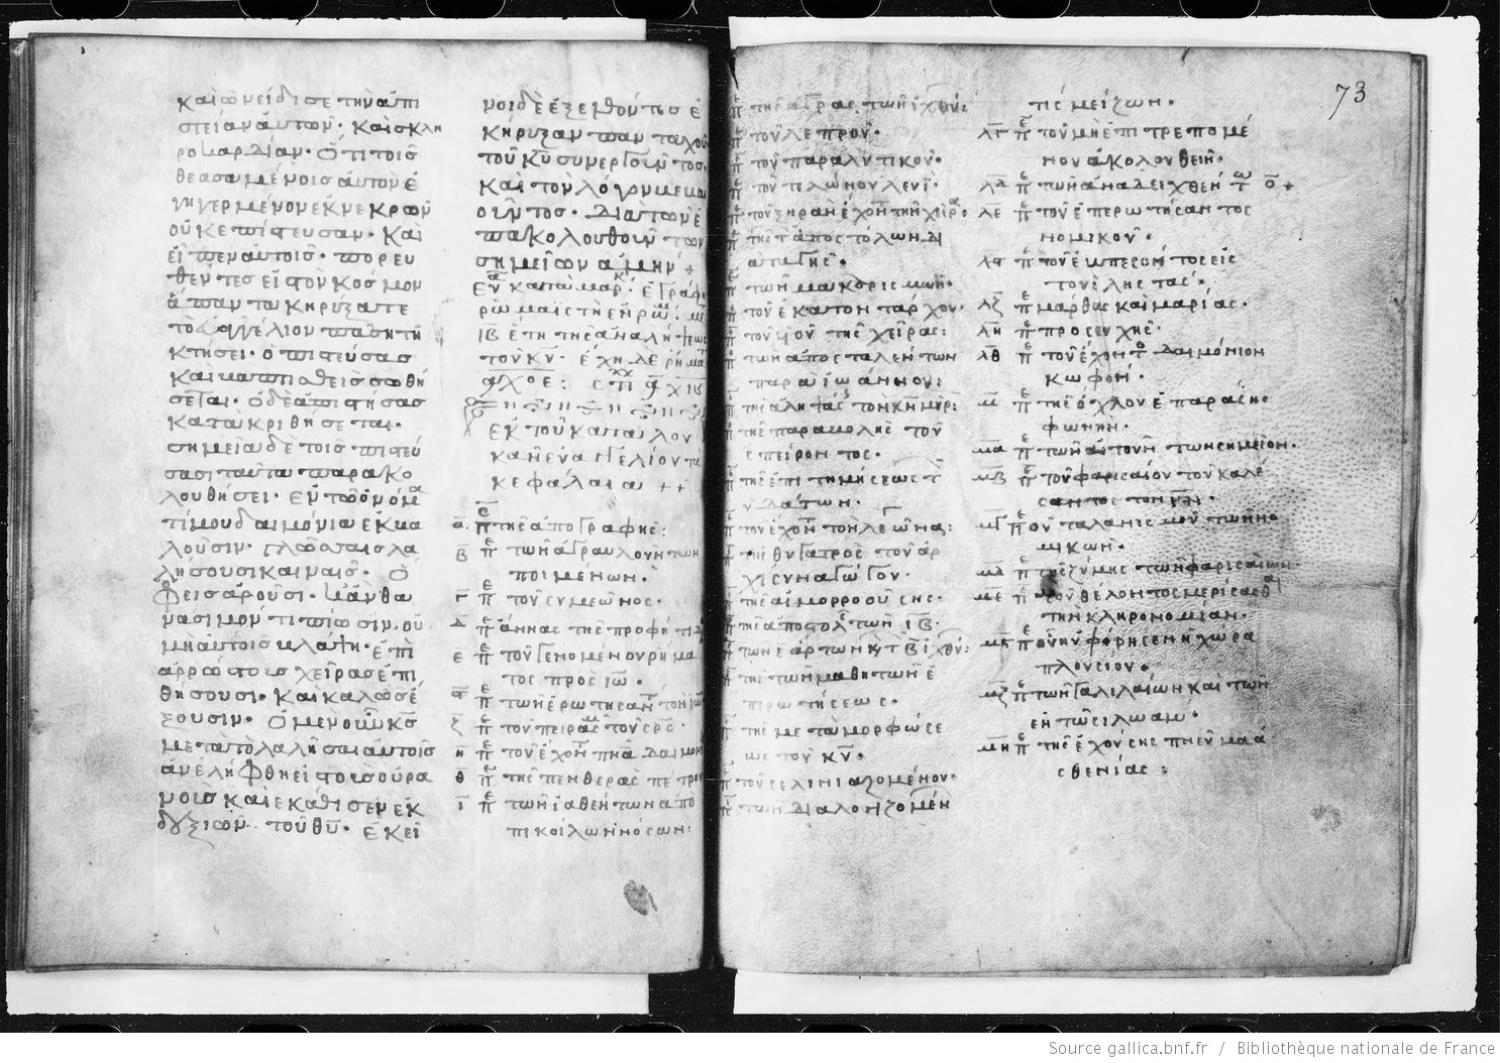 καὶ ὠνείδισε τὴν ἀπι
στείαν αὐτῶν· καὶ σκλη
ροκαρδίαν· ὅτι τοῖσ
θεασαμένοισ αὐτὸν ἐ
γηγερμένον ἐκ νεκρῶν
οὐκ ἐπίστευσαν· καὶ
εἶπεν αὐτοῖσ· πορευ
θέντεσ εἰσ τὸν κόσμον
ἅπαντα κηρύξατε
τὸ εὐαγγέλιον πάση τῆ
κτήσει· ὁ πιστεύσασ
καὶ βαπτισθεὶσ σωθή
σεται· ὁ δὲ ἀπιστήσασ
κατακριθήσεται·
σημεῖα δὲ τοῖσ πιστεύ
σασι ταῦτα παρακο
λουθήσει· ἐν τῶ ὀνόμα
τί μου δαιμόνια ἐκβα
λοῦσιν· γλώσσαισ λα
λήσουσι καιναῖσ· ὄ
φεισ ἀροῦσι· κἂν θα
νάσιμόν τι πίωσιν· οὐ
μὴ αὐτοὺσ βλάψη· ἐπὶ
ἀρρώστουσ χεῖρασ ἐπι
θήσουσι· καὶ καλῶσ ἕ
ξουσιν· ὁ μὲν οὖν κσ
μετὰ τὸ λαλῆσαι αὐτοῖσ
ἀνελήφθη εἰσ τοὺσ οὐρα
νοὺσ καὶ ἐκάθισεν ἐκ
δεξιῶν τοῦ θυ· ἐκεῖ
νοι δὲ ἐξελθόντεσ ἐ
κήρυξαν πανταχοῦ
τοῦ κυ συνεργοῦντοσ·
καὶ τὸν λόγον βεβαι
οῦντοσ· διὰ τῶν ἐ
πακολουθούντων
σημείων ἀμήν +
εὐα κατὰ μαρκ· ἐγράφη
ῥωμαϊστὶ ἐν ῥώμ·
ιβ ἔτη τῆσ ἀναλήψεωσ
τοῦ κυ· ἔχει δὲ ῥήμα
αχοε: στι αχιβ
ἐκ τοῦ κατὰ λου
κᾶν εὐαγγελίου τὰ
κεφάλαια ++
α πε τῆσ ἀπογραφῆσ:
β πε τῶν ἀγραυλούντων
ποιμένων·
γ πε τοῦ συμεῶνοσ·
δ πε ἄννασ τῆσ προφήτιδ
ε πε τοῦ γενομένου ῥήμα
τοσ πρὸσ ιω·
ϛ πε τῶν ἐρωτησάντ τὸν ιω
ζ πε τοῦ πειρασμ τοῦ σρσ·
η πε τοῦ ἔχοντ πνα δαιμον
θ πε τῆσ πενθερᾶσ πέτρου
ι πε τῶν ἰαθέντων ἀπὸ
ποικίλων νόσων:
πε τῆσ ἄγρασ τῶν ἰχθύ:
πε τοῦ λεπροῦ·
πε τοῦ παραλυτικοῦ·
πε τοῦ τελώνου λευί·
πε τοῦ ξηρὰν ἔχοντ τὴν χεῖρα·
πε τῆσ τ ἀποστόλων δι
αταγῆσ·
πε τῶν μακαρισμῶν·
πε τοῦ ἑκατοντάρχου·
πε τοῦ υἱοῦ τῆσ χήρασ:
πε τῶν ἀποσταλέντων
παρὰ ἰωάννου:
πε τῆσ ἀλειψάσ τὸν κν μύρ:
πε τῆσ παραβολῆσ τοῦ
σπείροντοσ·
πε τῆσ ἐπιτιμήσεωσ τ
ὑδάτων·
πε τοῦ ἔχοντ τὸν λεγεῶνα:
πε τῆσ θυγατρὸσ τοῦ ἀρ
χισυναγώγου·
πε τῆσ αἱμορροούσησ·
πε τῆσ ἀποστολ τῶν ιβ·
πε τῶν ε ἄρτων κ τ β ἰχθύ:
πε τῆσ τῶν μαθητῶν ἐ
περωτήσεωσ·
πε τῆσ μεταμορφώσε
ωσ τοῦ κυ·
πε τοῦ σεληνιαζομένου·
πε τῶν διαλογιζομέν
τίσ μείζων·
λγ πε τοῦ μὴ ἐπιτρεπομέ
νου ἀκολουθεῖν·
λδ πε τῶν ἀναδειχθέντ ο +
λε πε τοῦ ἐπερωτήσαντοσ
νομικοῦ·
λϛ πε τοῦ ἐμπεσόντοσ εἰσ
τοὺσ ληστάσ·
λζ πε μάρθασ καὶ μαρίασ·
λη πε προσευχῆσ·
λθ πε τοῦ ἔχοντ δαιμόνιον
κωφόν·
μ πε τῆσ ὄχλου ἐπαράσησ
φωνήν·
μα πε τῶν αἰτούντ σημεῖον·
μβ πε τοῦ φαρισαίου τοῦ καλέ
σαντοσ τὸν ιν·
μγ πε τοῦ ταλανισμοῦ τῶν νο
μικῶν·
μδ πε τῆσ ζύμησ τῶν φαρισαίων·
με πε τοῦ θέλοντοσ μερίσασθαι
τὴν κληρονομίαν·
μϛ πε οὗ ηὐφόρησεν ἡ χώρα
πλουσίου·
μζ πε τῶν γαλιλαίων καὶ τῶν
ἐν τῶ σιλωάμ·
μη πε τῆσ ἐχούσησ πνεῦμα ἀ
σθενίασ:
73
Source gallica.bnf.fr / Bibliothèque nationale de France